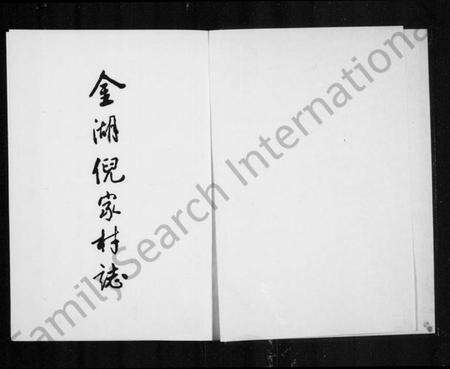 金湖倪家村誌
FamilySearch International